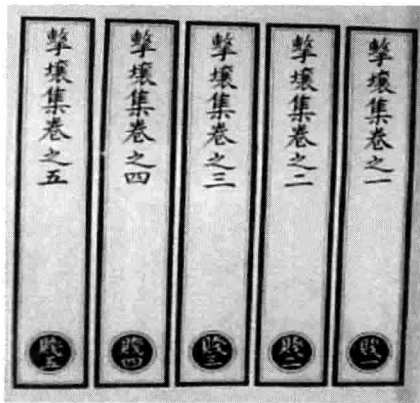 擊壤集卷之一
賤一
擊壤集卷之二
賤二
擊壤集卷之三
賤三
擊壤集卷之四
賤四
擊壤集卷之五
賤五